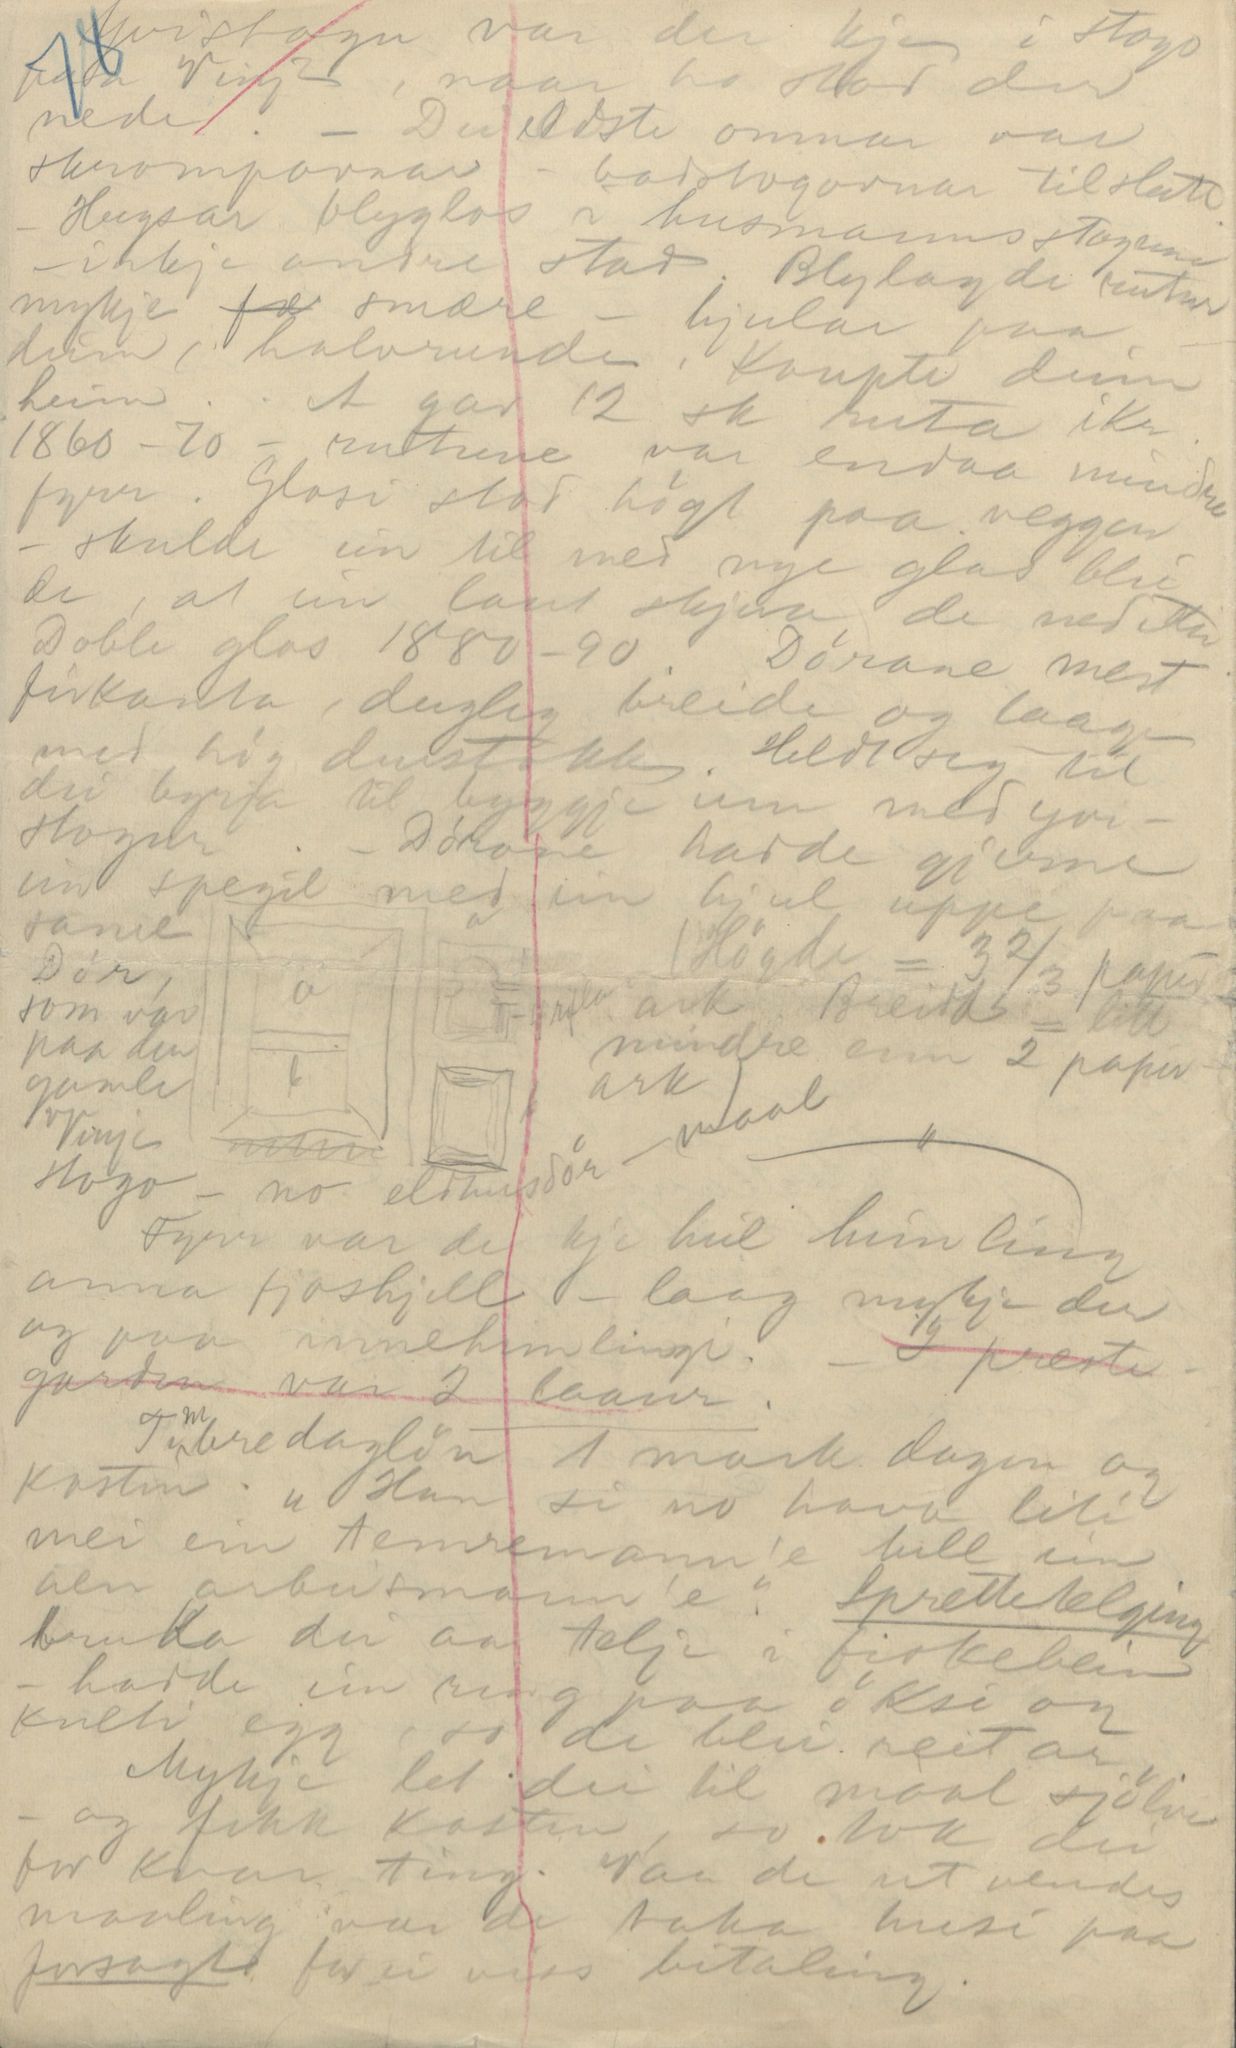 78
var der kje i stogo
Vinje, naar ho stod der
nede. – Dei eldste omnar var
skrompovnar – badstogovnar til slutt.
– Hugsar blyglas i husmannsstogune
– inkje andre stad. Blylagde rutur
mykje smære – hjular paa
deim, halvrunde. Kaupte deim
heim. A gav 12 sk ruta ikr.
1860–70 – rutune var endaa mindre
fyrr. Glasi stod högt paa veggen
– skulde ein til med nye glas blei
de, at ein laut skjera de ned etter.
Doble glas 1880–90. Dörane mest
firkanta, dugleg breide og laage
med hög durstokk. Heldt seg til
dei byrja til byggje um med yvi-
stogur. – Dörane hadde gjerne
ein spegil med ein hjul uppe paa
same
Dör,
som var
paa den
gamle
Vinje
stogo – no eldhusdör – maal
a
b
Högde = 3 2/3 papir
ark Breidd = litt
mindre enn 2 papir
ark
Fyrr var de kje heil himling
anna fjoshjell – laag mykje der
og paa innehimlingi. – I preste-
garden var 2 laavur.
Tymbredaglön 1 mark dagen og
kosten. „Han si no hava liti
mei ein temremann'e hell ein
aen arbeismann'e". Sprettetelging
bruka dei aa telje i fiskebein
– hadde ein ring paa öksi og
kveti egg, so de blei reit av
Mykje let dei til maal sjölve
– og fekk kosten, so tok dei
for kvar ting. Var de utvendes
maaling var de taka husi paa
forsagt for ei viss bitaling.